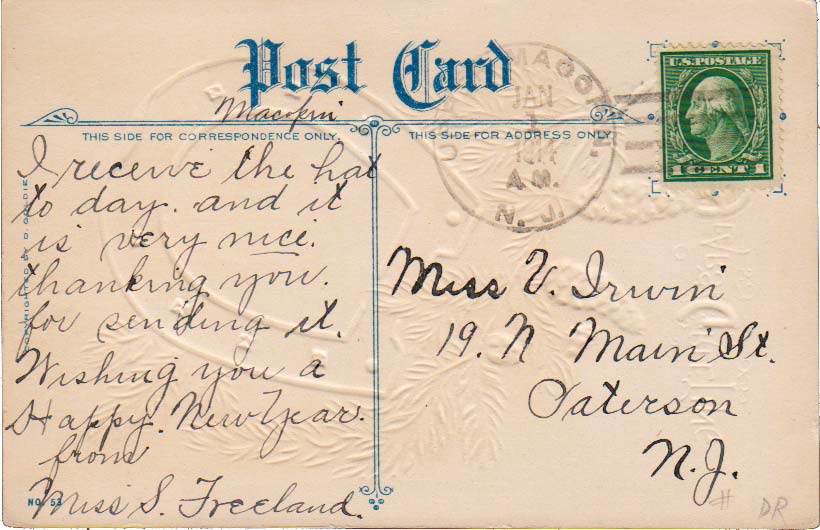 Post Card
Macopin
THIS SIDE FOR CORRESPONDENCE ONLY.
THIS SIDE FOR ADDRESS ONLY.
I receive the hat
to day. and it
is very nice.
thanking you.
for sending it.
Wishing you a
Happy. New Year.
from
Miss S. Freeland.
NO. 53
JAN
1
A.M.
N. J.
U.S. POSTAGE
1 CENT 1
Miss V. Irwin
19. N Main St.
Paterson
N.J.
# DR